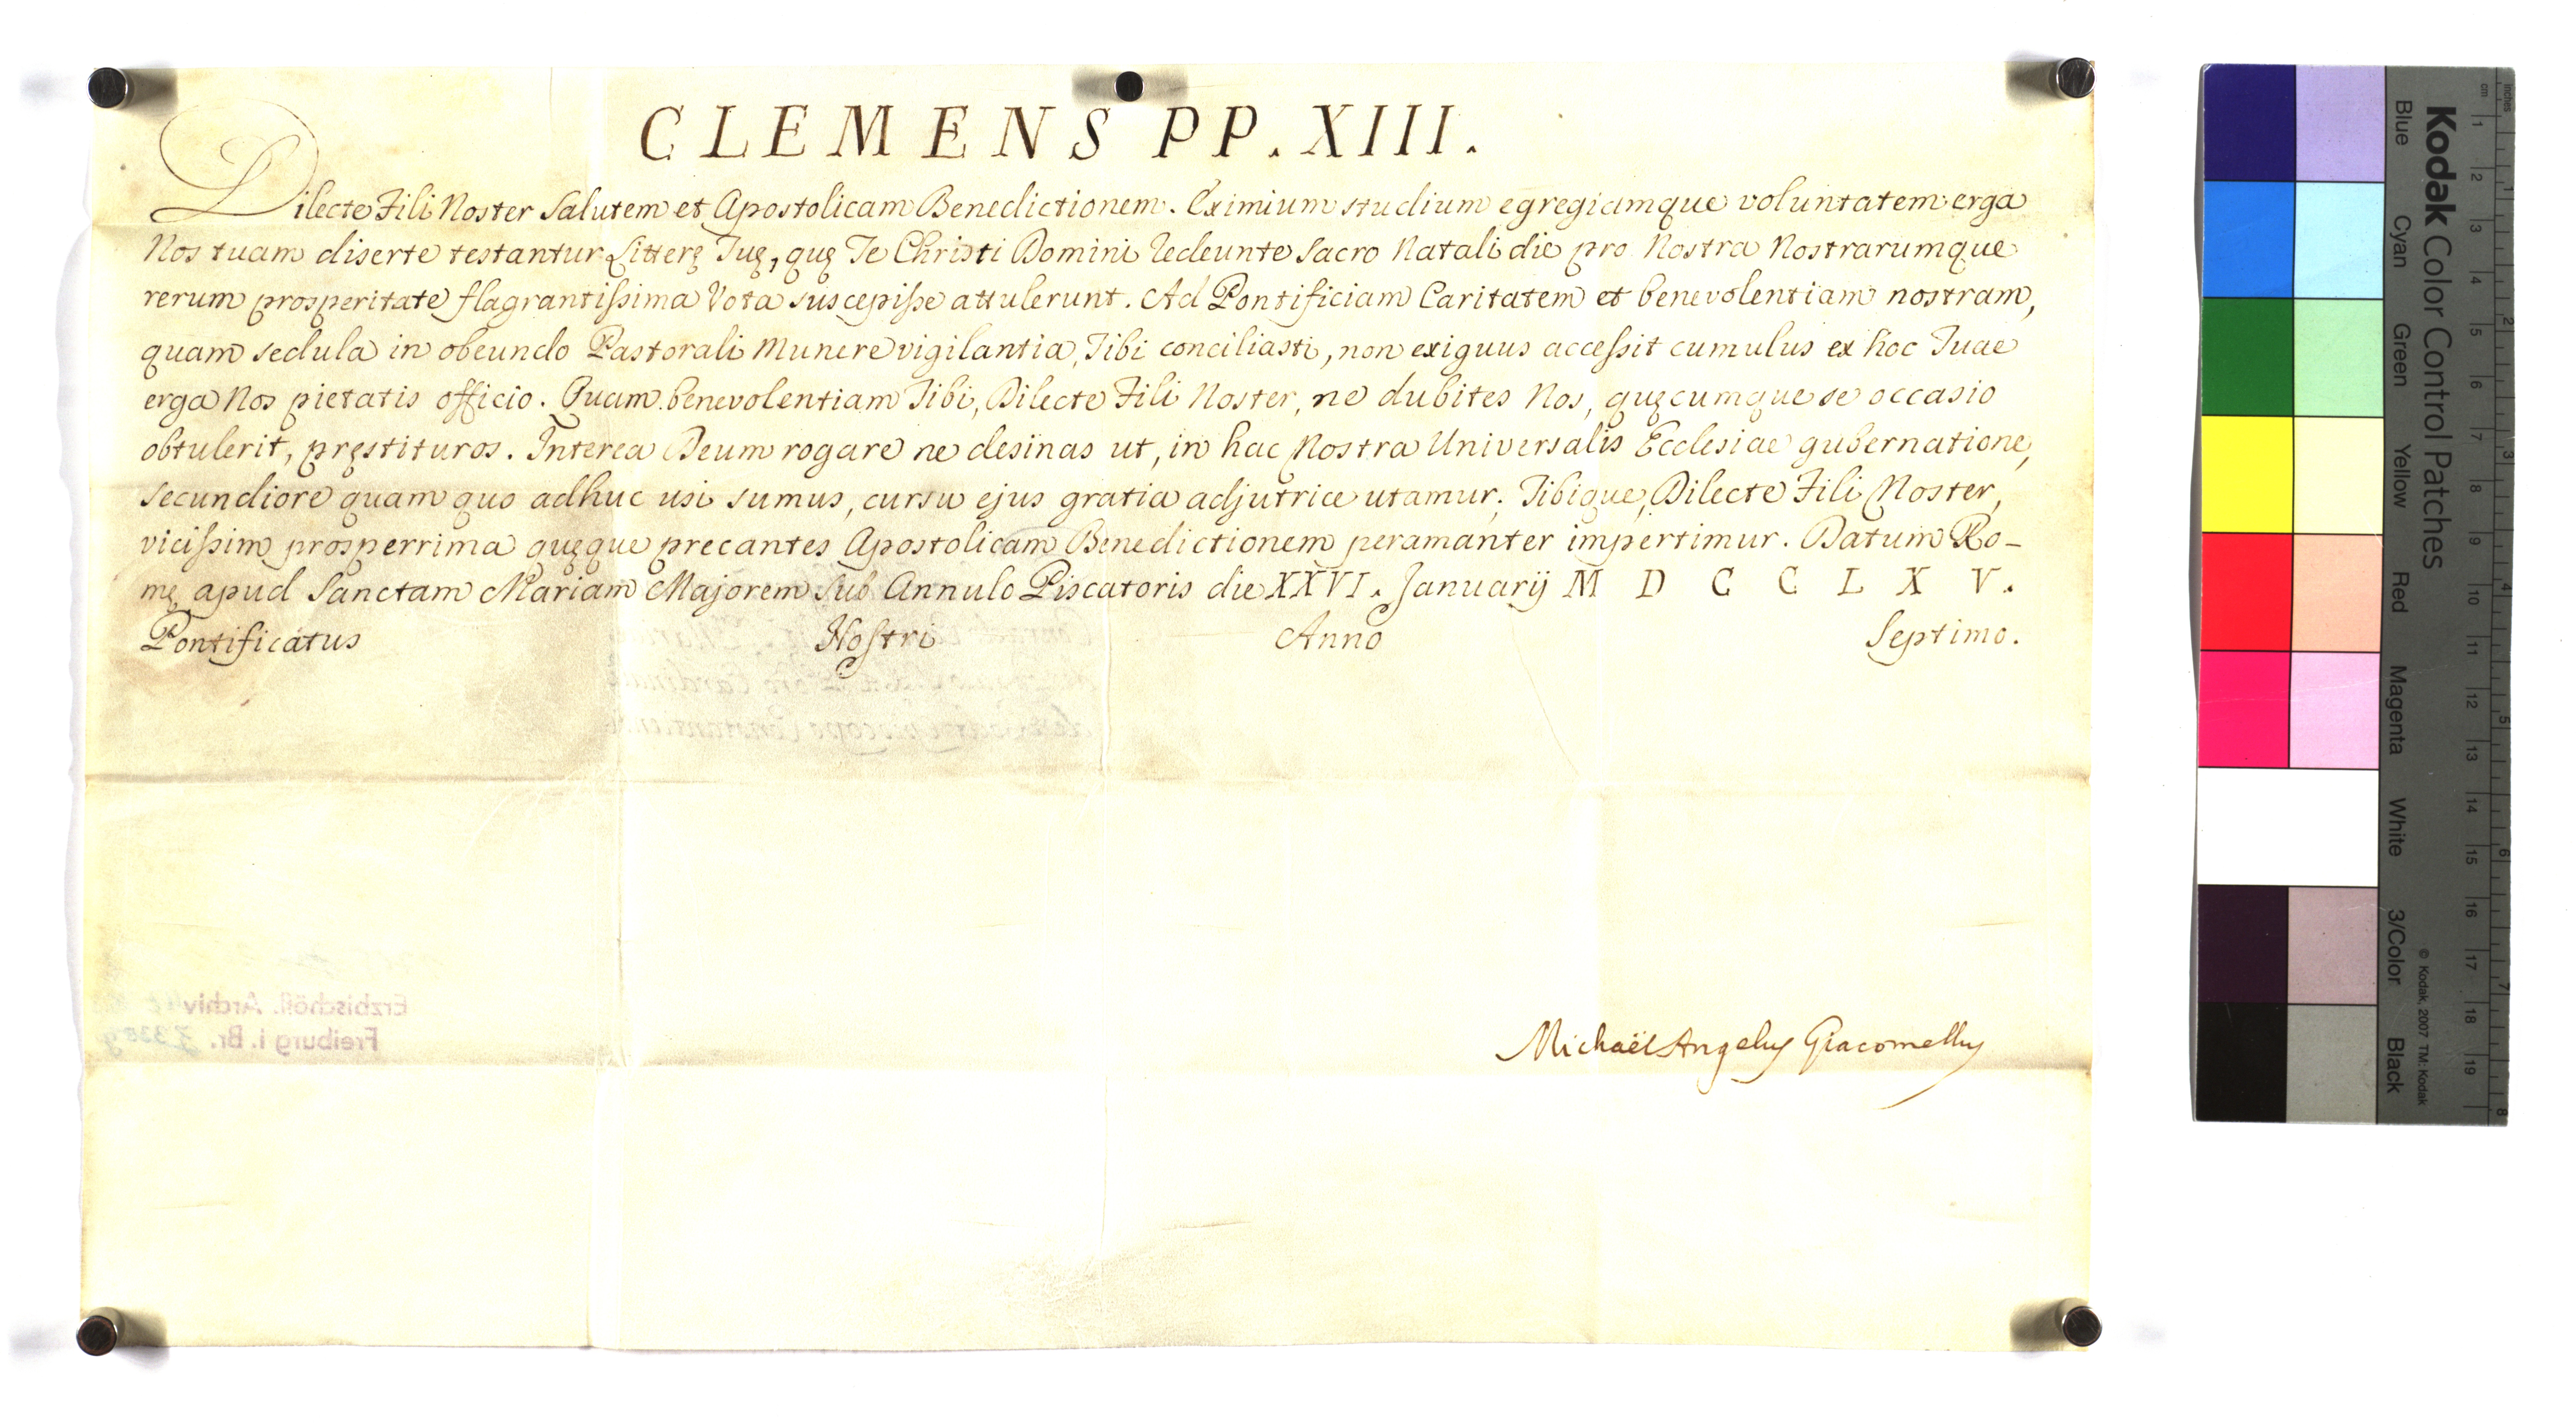 CLEMENS PP. XIII.
Dilecte Fili Noster Salutem et Apostolicam Benedictionem. Eximium studium egregiamque voluntatem erga
Nos tuam diserte testantur Litterę Tuę, quę Te Christi Domini redeunte Sacro Natali die pro Nostra Nostrarumque
rerum prosperitate flagrantissima Vota suscepisse attulerunt. Ad Pontificiam Caritatem et benevolentiam nostram,
quam sedula in obeundo Pastorali Munere vigilantia, Tibi conciliasti, non exiguus accessit cumulus ex hoc Tuae
erga Nos pietatis officio. Quam benevolentiam Tibi, Dilecte Fili Noster, ne dubites Nos, quęcumque se occasio
obtulerit, pręstituros. Interea Deum rogare ne desinas ut, in hac Nostra Universalis Ecclesiae gubernatione,
secundiore quam quo adhuc usi sumus, cursu ejus gratia adjutrice utamur; Tibique, Dilecte Fili Noster,
vicissim prosperrima quęque precantes Apostolicam Benedictionem peramanter impertimur. Datum Ro-
mę apud Sanctam Mariam Majorem sub Annulo Piscatoris die XXVI. Januarij M D C C L X V.
Pontificatus Nostri Anno Septimo.
Erzbischöfl. Archiv
Freiburg i. Br.
Michaël Angelus Giacomellus
Kodak Color Control Patches
Blue Cyan Green Yellow Red Magenta White 3/Color Black
© Kodak, 2007 TM: Kodak
cm 1 2 3 4 5 6 7 8 9 10 11 12 13 14 15 16 17 18 19
Inches 1 2 3 4 5 6 7 8